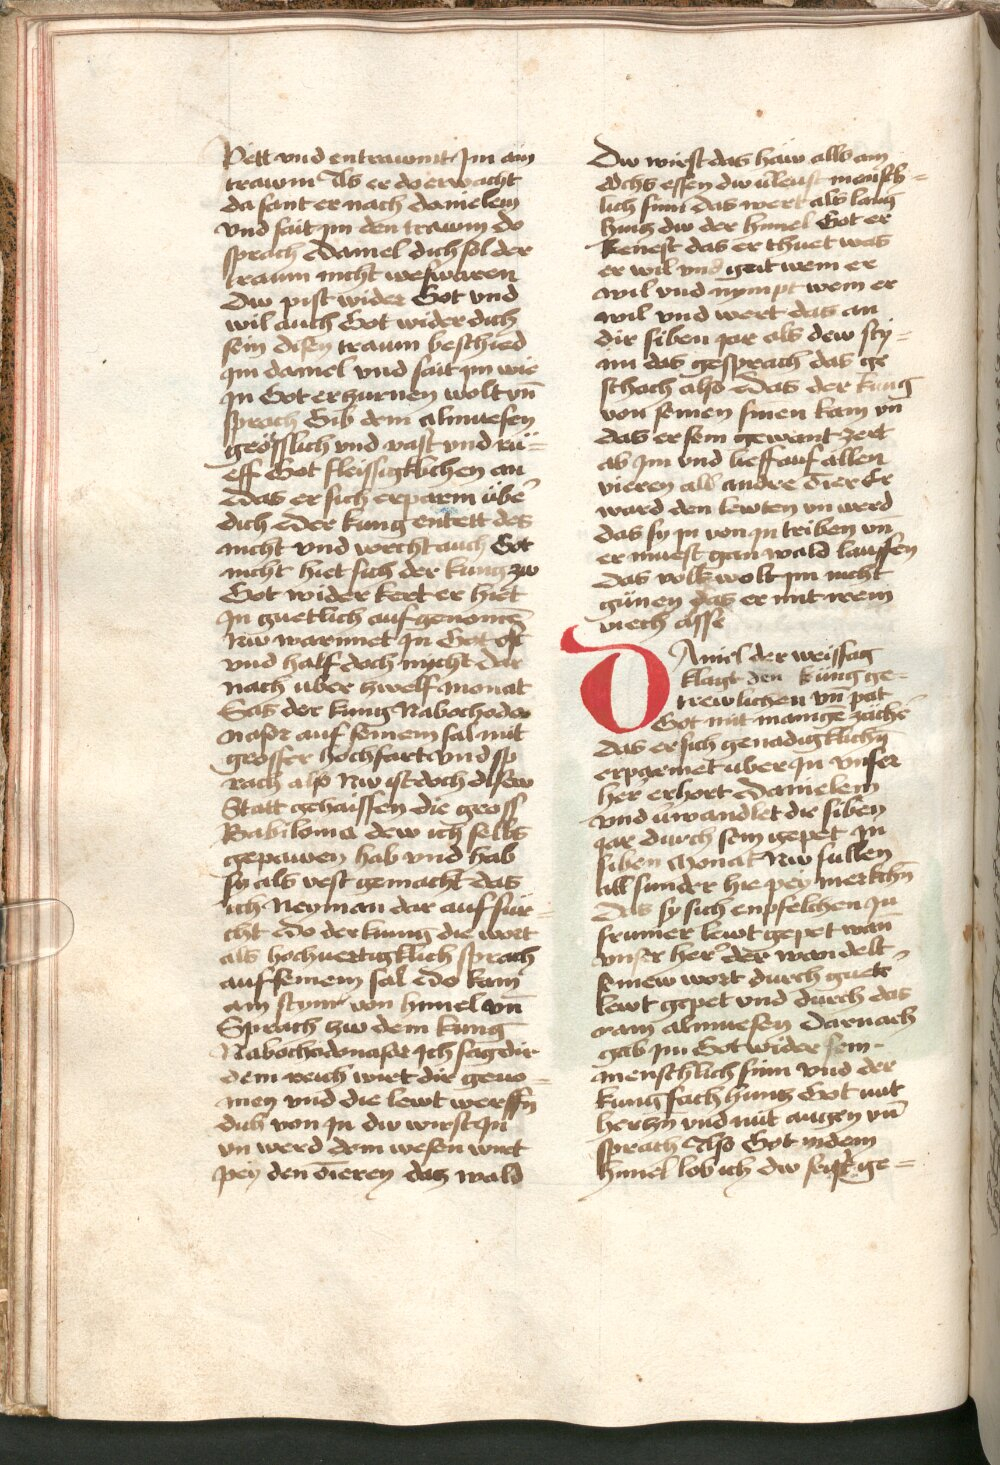 Pett vnd entrawmt Jm ain
trawm Als er do erwacht
da sant er nach danielem
vnd sait jm den trawm do
sprach Daniel dich sol der
traum nicht weswaren
Dw pist wider Got vnd
wil auch Got wider dich
sein disen traum beschied
jm daniel vnd sait jm wie
jn Got erzurnen wolt vn̄
sprach Gib dein almuesen
grösslich vnd vast vnd rü=
eff Got fleissigklichen an
Das er sich erparm übe͛
dich Der kung entett des
nicht vnd vorcht auch Got
nicht hiet sich der kung zw
Got wider kert er hiet
jn guetlich auf genomē
Nw warnnet jn Got oft
vnd half doch nicht dar
nach uber zwelf monat
Sas der kung Nabochodo
nasor auf seinem sal mit
grosser hochfart vnd sp
rach also Nw ist doch disew
Statt gehaissen die gross
Babilonia dew ich selbs
gepawen hab vnd hab
sy als vest gemacht das
ich Neyman dar auf für=
cht Do der kung die wort
als hochuertigklich sprach
auf seinem sal Do kam
ain stym von himel vn̄
Sprach zw dem kung
Nabochodonasor Ich sag dir
dein reich wirt dir geno=
men vnd die lewt werffn̄
dich von jn dw wirst jn
vn werd dein wesen wirt
pey den dieren das wald
Dw wirst das haw alls ain
Ochs essen dw uleust mensch=
lich sinn das wert als lang
huncz dw der himel Got er
kenest das er thuet was
er wil vnd geit wem er
wil vnd nympt wem er
wil vnd wert das an
dir siben jar als dew sty=
m das gesprach das ge
schach also Das der kung
von seinen sinen kam vn̄
das er sein gewant zert
ab jm vnd lieff auf allen
vieren als andre dier Er
ward den lewten vn werd
das sy jn von jn triben vn̄
er muest gen wald lauffen
Das volk wolt jm nicht
günen das er mit irem
viech ässe
DAniel der weissag
klagt den küng ge=
trewlichen vn̄ pat
Got mit manigē zäche͛
das er sich genadigklichn̄
erparmet uber jn vnser
her erhort Danielem
vnd uwandlet die siben
jar durch sein gepet jn
siben Monat Nw sullen
all sunder hie pey merkchn̄
Das sy sich enpfelchen jn
frumer lewt gepet wan̄
vnser her der wandelt
seinew wort durch guet͛
lewt gepet vnd durch das
rain almuesen Darnach
gab jm Got wider sein
menschlich sinn vnd der
kung sach huncz Got mit
herczn̄ vnd mit augen vn̄
sprach Also Got in dem
himel lob ich dw seist ge=